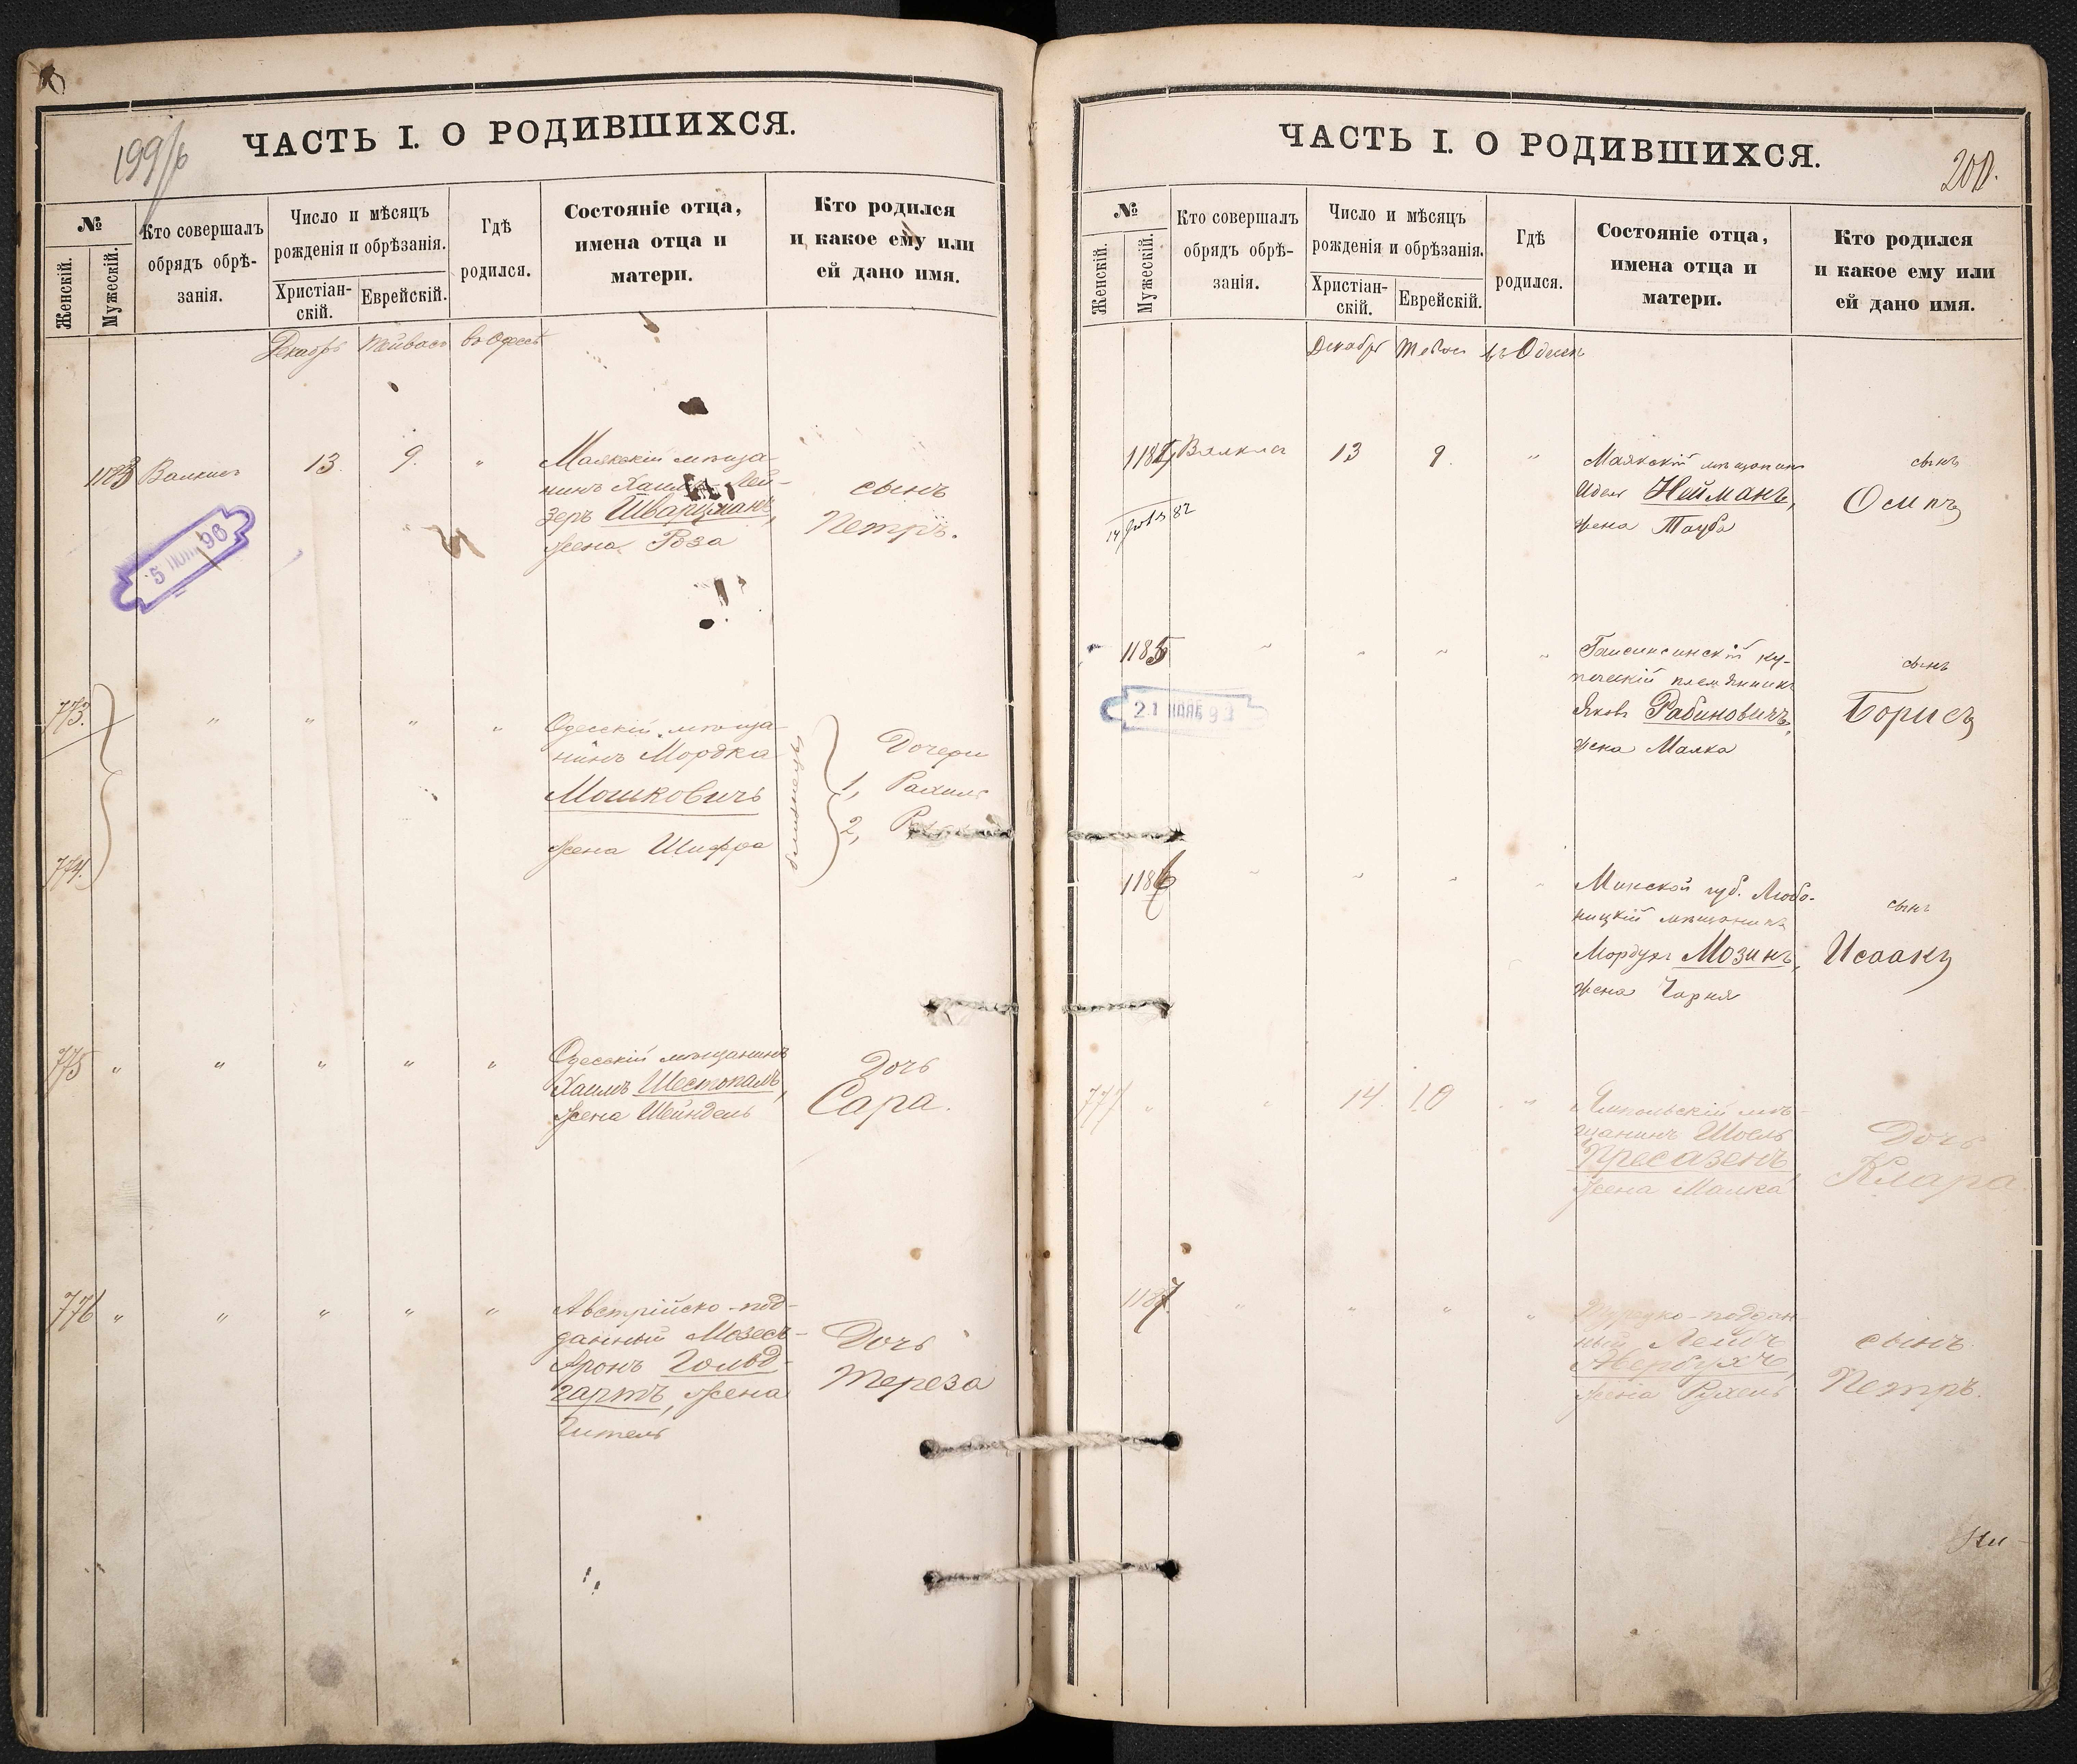 199/б
ЧАСТЬ I. О РОДИВШИХСЯ.
№
Женскій.
Мужескій.
Кто совершалъ
обрядъ обрѣ-
занія.
Число и мѣсяцъ
рожденія и обрѣзанія.
Христіан-
скій.
Еврейскій.
Гдѣ
родился.
Состояніе отца,
имена отца и
матери.
Кто родился
и какое ему или
ей дано имя.
Декабрь Тейвасъ въ Одессѣ
1183 13. 9. " Маякскій мѣща-
нинъ Хаимъ-Лей-
зеръ Шварцманъ,
жена Роза
сынъ
Петръ.
5 96
773. " " " " Одесскій мѣща-
нинъ Мордка
Мошковичъ
жена Шифра
близнецы
Дочери
1, Рахиль
2,
774.
775 " " " " " Одесскій мѣщанинъ
Хаимъ Шестопалъ,
жена Шейндель
Дочь
Сара.
776 " " " " " Австрійско-под-
данный Мозесъ-
Аронъ Гольд-
гартъ, жена
Гитель
Дочь
Тереза
ЧАСТЬ I. О РОДИВШИХСЯ.
200.
№
Женскій.
Мужескій.
Кто совершалъ
обрядъ обрѣ-
занія.
Число и мѣсяцъ
рожденія и обрѣзанія.
Христіан-
скій.
Еврейскій.
Гдѣ
родился.
Состояніе отца,
имена отца и
матери.
Кто родился
и какое ему или
ей дано имя.
Декабрь въ Одессѣ
1184 13 9. " Маякскій мѣщанинъ
Нейманъ,
жена Тауба
сынъ
Осипъ
1185 " " " " ку-
печескій племянникъ
Яковъ Рабиновичъ,
жена Малка
сынъ
Борисъ
21 НОЯБ 93
1186 " " " " Минской губ. Любо-
ницкій мѣщанинъ
Мордухъ Мозинъ,
жена Чарня
сынъ
Исаакъ
777 " " 14. 10 " Ямпольскій мѣ-
щанинъ Шоель
Пресайзенъ
жена Малка
Дочь
Клара
1187. " " " " Турецко-поддан-
ный
Авербухъ,
жена Рухель
сынъ
Петръ.